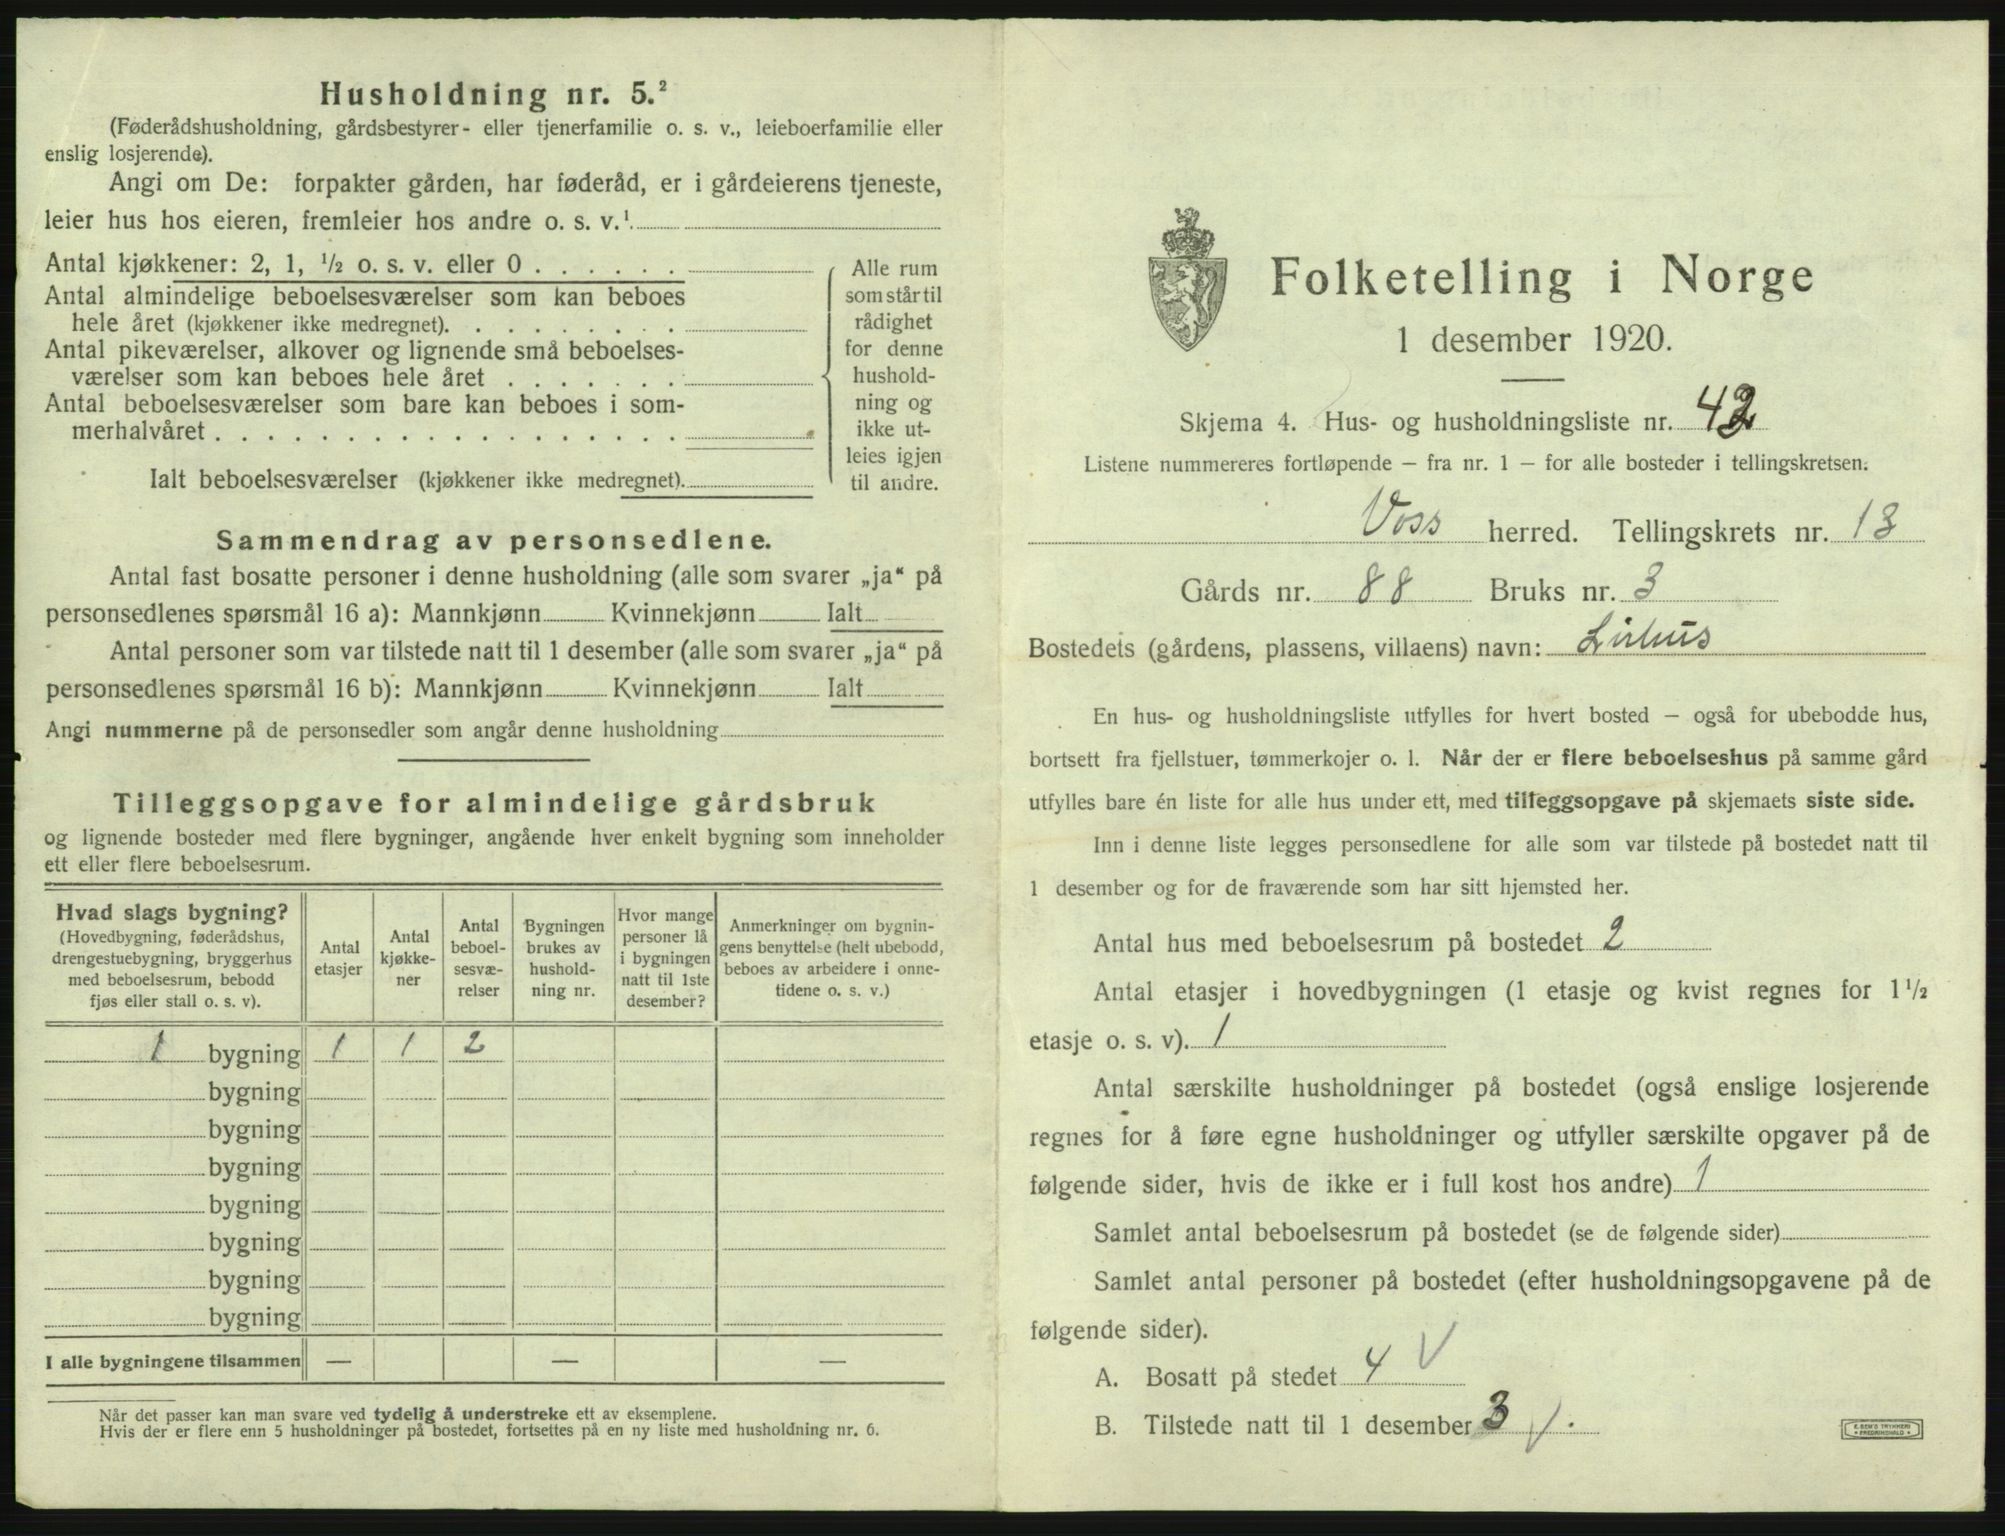 Husholdning nr. 5.²
(Føderådshusholdning, gårdsbestyrer- eller tjenerfamilie o. s. v., leieboerfamilie eller
enslig losjerende).
Angi om De: forpakter gården, har føderåd, er i gårdeierens tjeneste,
leier hus hos eieren, fremleier hos andre o. s. v.¹.
Antal kjøkkener: 2, 1, ½ o. s. v. eller 0
Antal almindelige beboelsesværelser som kan beboes
hele året (kjøkkener ikke medregnet).
Antal pikeværelser, alkover og lignende små beboelses-
værelser som kan beboes hele året
Antal beboelsesværelser som bare kan beboes i som-
merhalvåret
Ialt beboelsesværelser (kjøkkener ikke medregnet).
Alle rum
som står til
rådighet
for denne
hushold-
ning og
ikke ut-
leies igjen
til andre.
Sammendrag av personsedlene.
Antal fast bosatte personer i denne husholdning (alle som svarer „ja“ på
personsedlenes spørsmål 16 a): Mannkjønn Kvinnekjønn Ialt
Antal personer som var tilstede natt til 1 desember (alle som svarer „ja“ på
personsedlenes spørsmål 16 b): Mannkjønn Kvinnekjønn Ialt
Angi nummerne på de personsedler som angår denne husholdning
Tilleggsopgave for almindelige gårdsbruk
og lignende bosteder med flere bygninger, angående hver enkelt bygning som inneholder
ett eller flere beboelsesrum.
Hvad slags bygning?
(Hovedbygning, føderådshus,
drengestuebygning, bryggerhus
med beboelsesrum, bebodd
fjøs eller stall o. s. v).
Antal
etasjer
Antal
kjøkke-
ner
Antal
beboel-
sesvæ-
relser
Bygningen
brukes av
hushold-
ning nr.
Hvor mange
personer lå
i bygningen
natt til 1ste
desember?
Anmerkninger om bygnin-
gens benyttelse (helt ubebodd,
beboes av arbeidere i onne-
tidene o. s. v.)
1 bygning 1 1 2
bygning
bygning
bygning
bygning
bygning
bygning
bygning
I alle bygningene tilsammen — — —
Når det passer kan man svare ved tydelig å understreke ett av eksemplene.
Hvis der er flere enn 5 husholdninger på bostedet, fortsettes på en ny liste med husholdning nr. 6.
Folketelling i Norge
1 desember 1920.
Skjema 4. Hus- og husholdningsliste nr. 42
Listene nummereres fortløpende – fra nr. 1 – for alle bosteder i tellingskretsen.
Voss herred. Tellingskrets nr. 13
Gårds nr. 88 Bruks nr. 3
Bostedets (gårdens, plassens, villaens) navn: Lirhus
En hus- og husholdningsliste utfylles for hvert bosted – også for ubebodde hus,
bortsett fra fjellstuer, tømmerkojer o. l. Når der er flere beboelseshus på samme gård
utfylles bare én liste for alle hus under ett, med tilleggsopgave på skjemaets siste side.
Inn i denne liste legges personsedlene for alle som var tilstede på bostedet natt til
1 desember og for de fraværende som har sitt hjemsted her.
Antal hus med beboelsesrum på bostedet 2
Antal etasjer i hovedbygningen (1 etasje og kvist regnes for 1½
etasje o. s. v). 1
Antal særskilte husholdninger på bostedet (også enslige losjerende
regnes for å føre egne husholdninger og utfyller særskilte opgaver på de
følgende sider, hvis de ikke er i full kost hos andre) 1
Samlet antal beboelsesrum på bostedet (se de følgende sider)
Samlet antal personer på bostedet (efter husholdningsopgavene på de
følgende sider).
A. Bosatt på stedet 4
B. Tilstede natt til 1 desember 3